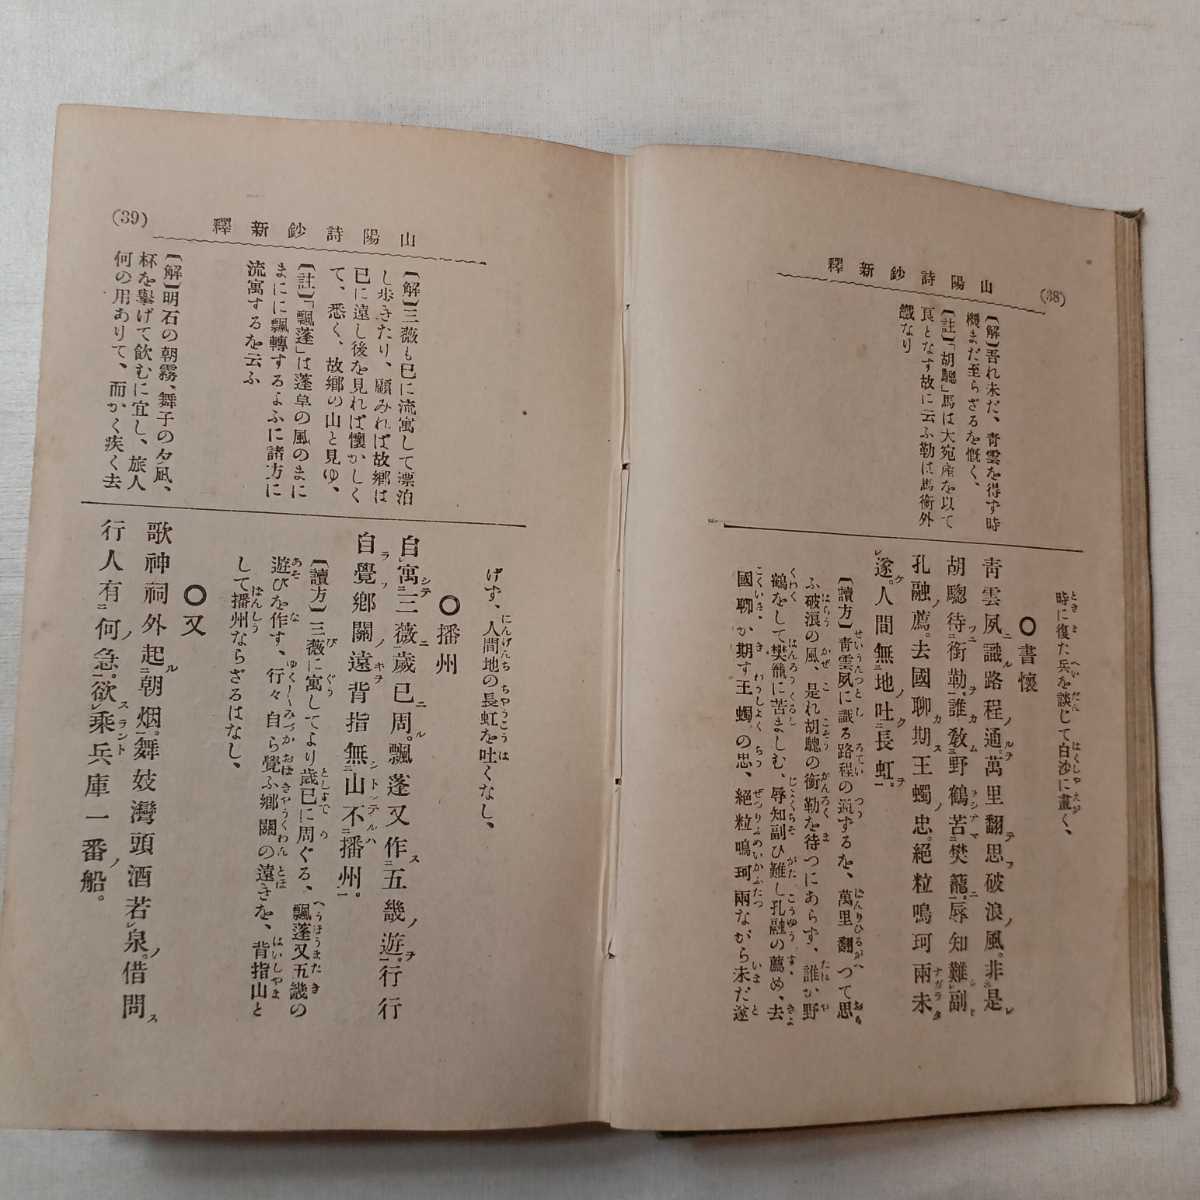 (38)
山陽詩鈔新釋
〔解〕吾れ未だ、青雲を得ず時
機まだ至らざるを慨く、
〔註〕「胡驄」馬は大宛産を以て
良となす故に云ふ勒は馬衡外
鐵なり
時に復た兵を談じて白沙に畫く、
〇書懷
靑雲夙識路程通。萬里翻思破浪風。非是
胡驄待銜勒。誰敎野鶴苦樊籠。辱知難副
孔融薦。去國聊期王蠋忠。絕粒鳴珂兩未
遂。人間無地吐長虹。
〔讀方〕靑雲夙に識る路程の通ずるを、萬里翻つて思
ふ破浪の風、是れ胡驄の銜勒を待つにあらず、誰か野
鶴をして樊籠に苦ましむ、辱知副ひ難し孔融の薦め、去
國聊か期す王蠋の忠、絕粒鳴珂兩ながら未だ遂
(39)
山陽詩鈔新釋
〔解〕三薇も已に流寓して漂泊
し歩きたり、顧みれば故鄉は
已に遠し後を見れば懷かしく
て、悉く、故鄉の山と見ゆ、
〔註〕「飄蓬」は蓬草の風のまに
まにに飄轉するよふに諸方に
流寓するを云ふ
〔解〕明石の朝霧、舞子の夕凪、
杯を擧げて飲むに宜し、旅人
何の用ありて、而かく疾く去
げず、人間地の長虹を吐くなし、
〇播州
自寓三薇歲已周。飄蓬又作五畿遊。行行
自覺鄉關遠背指無山不播州。
〔讀方〕三薇に寓してより歲已に周ぐる、飄蓬又五畿の
遊びを作す、行々自ら覺ふ鄉關の遠きを、背指山と
して播州ならざるはなし、
〇又
歌神祠外起朝烟。舞妓灣頭酒若泉。借問
行人有何急。欲乘兵庫一番船。